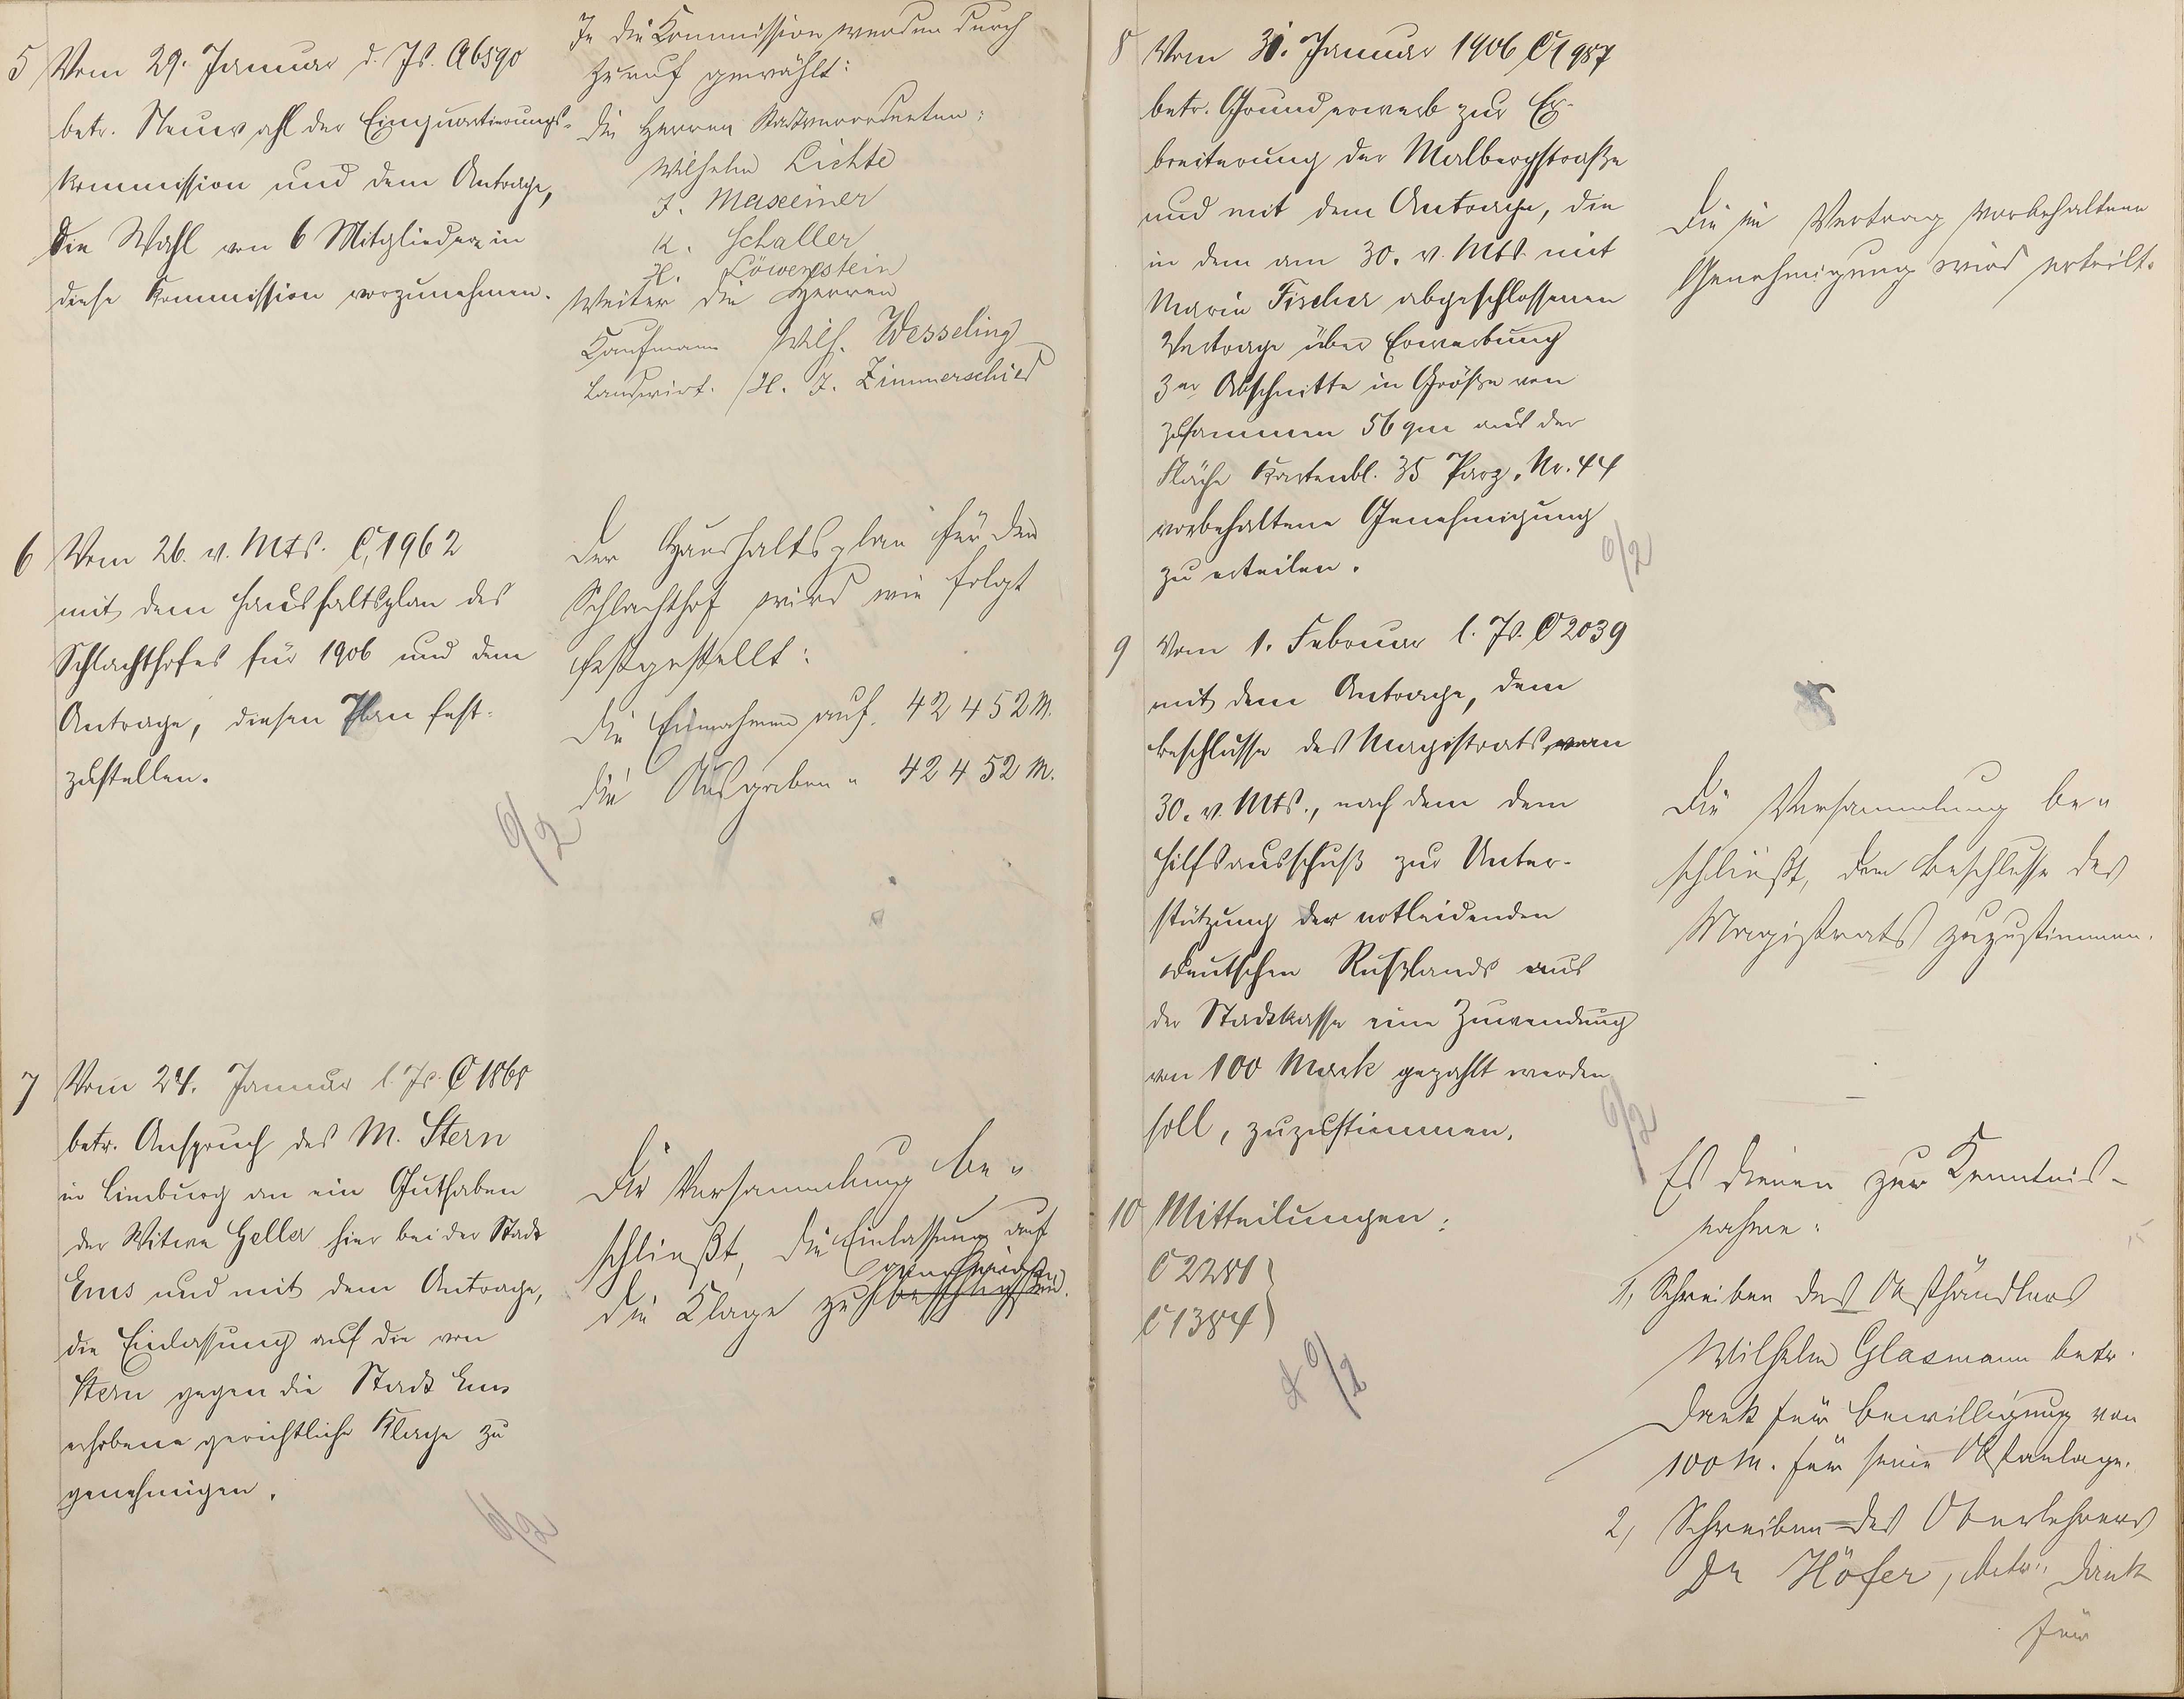 5 Vom 29. Januar d. Js. A 6590
betr. Neuwahl der Einquartierungs-
kommission und dem Antrage,
die Wahl von 6 Mitglieder in
diese Kommission vorzunehmen.
In die Kommission werden durch
Zuruf gewählt:
die Herren Stadtverordneten:
Wilhelm Lichte
J. Maxeiner
K. Schaller
H. Löwenstein
Weiter die Herren
Kaufmann Wilh. Wesseling
Landwirt. H. J. Zimmerschied
6 Vom 26. v. Mts. C 1962
mit dem Haushaltsplan des
Schlachthofes für 1906 und dem
Antrage, diesen Plan fest-
zustellen.
6/2
Der Haushaltsplan für den
Schlachthof wird wie folgt
festgestellt:
die Einnahmen auf. 42 452 M.
die Ausgaben " 42 452 M.
7 Vom 24. Januar l. Js. C 1868
betr. Anspruch des M. Stern
in Limburg an ein Guthaben
der Witwe Heller hier bei der Stadt
Ems und mit dem Antrage,
die Einlassung auf die von
Stern gegen die Stadt Ems
erhobene gerichtliche Klage zu
genehmigen.
6/2
Die Versammlung be-
schließt, die Einlassung auf
genehmigen
die Klage zu beschließen.
8 Vom 31. Januar 1906 C 1987
betr. Grunderwerb zur Er-
breiterung der Malbergstraße
und mit dem Antrage, die
in dem am 30. v. Mts. mit
Marie Fischer abgeschlossenen
Vertrage über Erwerbung
3er Abschnitte in Größe von
zusammen 56 qm aus der
Fläche Kartenbl. 35 Parz. Nr. 44
vorbehaltene Genehmigung
zu erteilen.
6/2
Die im Vertrag vorbehaltene
Genehmigung wird erteilt.
9 Vom 1. Februar l. Js. C 2039
mit dem Antrage, dem
Beschlusse des Magistrats, vom
30. v. Mts., nach dem dem
Hilfsausschuß zur Unter-
stützung der notleidenden
Deutschen Rußlands aus
der Stadtkasse eine Zuwendung
von 100 Mark gezahlt werden
soll, zuzustimmen.
6/2
Die Versammlung be-
schließt, dem Beschlusse des
Magistrats zuzustimmen.
10 Mitteilungen:
C 2281
C 1384
6/2
Es dienen zur Kenntnis-
nahme:
1, Schreiben des Obsthändlers
Wilhelm Glasmann betr.
Dank für Bewilligung von
100 M. für seine Obstanlage.
2, Schreiben des Oberlehrers
Dr Höfer, betr. Dank
für